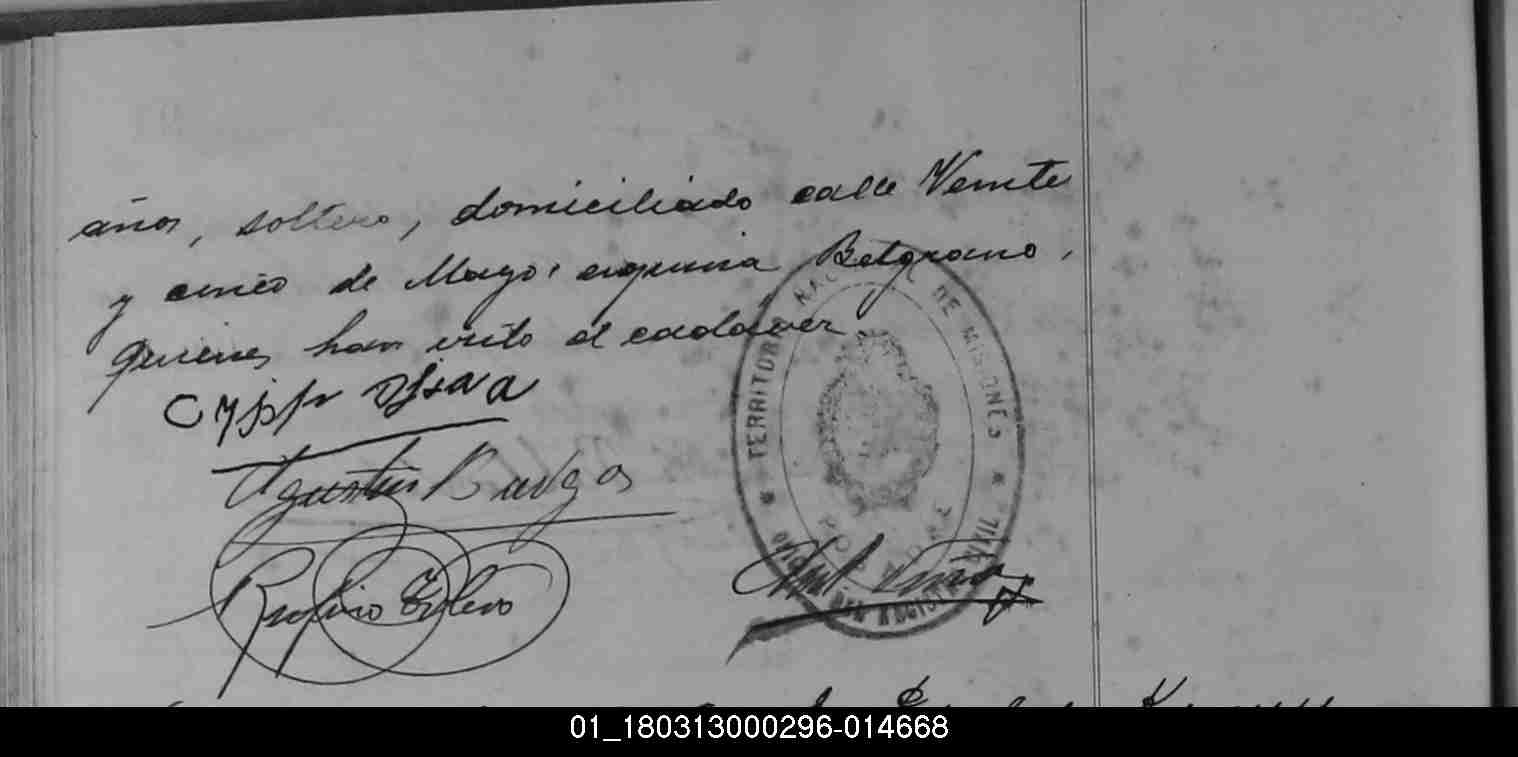 años, soltero, domiciliado calle Veinte
y cinco de Mayo, esquina Belgrano,
quienes han visto el cadáver
Agustin Burgos
Rufino
TERRITORIO NACIONAL DE MISIONES
OFICINA DEL REGISTRO CIVIL
POSADAS
01_180313000296-014668